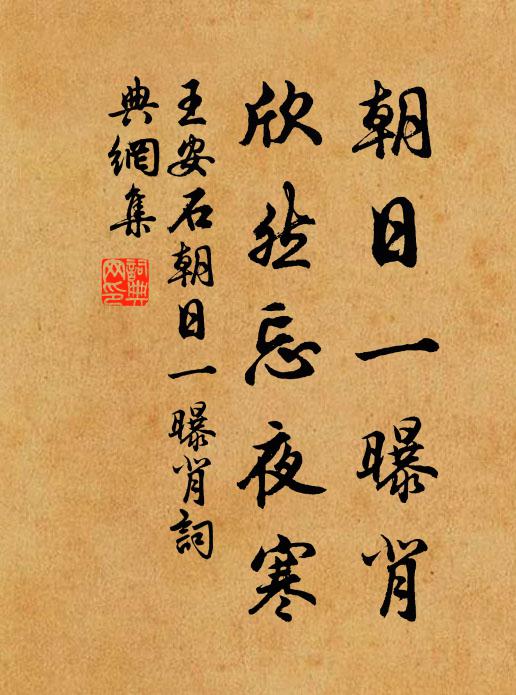 朝日一曝背
欣然忘夜寒
王安石朝日一曝背詞
典網集
詞典
网印